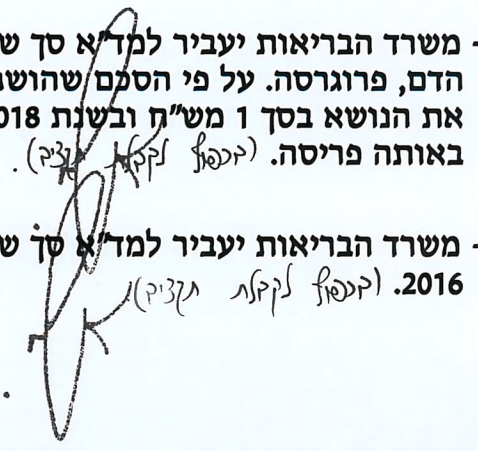 - משרד הבריאות יעביר למד"א סך ש
הדם, פרוגרסה. על פי הסכם שהושג
את הנושא בסך 1 מש"ח ובשנת 2018
באותה פריסה. (בכפוף לקבלת תקציב).
- משרד הבריאות יעביר למד"א סך ש
2016. (בכפוף לקבלת תקציב)